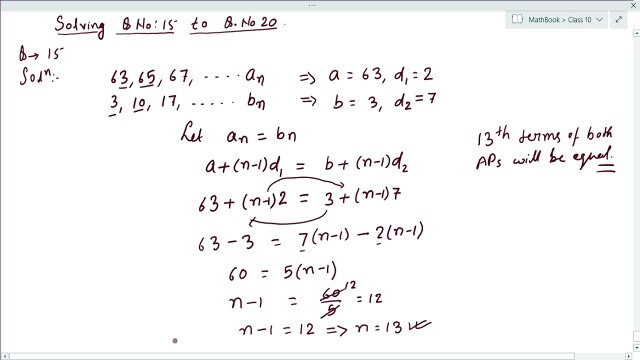 Solving Q No: 15 to Q. No 20.
MathBook > Class 10
Q → 15
Solⁿ:-
63, 65, 67, ..... aₙ ⇒ a = 63, d₁ = 2
3, 10, 17, ...... bₙ ⇒ b = 3, d₂ = 7
Let aₙ = bₙ
a + (n-1)d₁ = b + (n-1)d₂
63 + (n-1)2 = 3 + (n-1)7
63 - 3 = 7(n-1) - 2(n-1)
60 = 5(n-1)
n-1 = 60/5 12 = 12
n-1 = 12 ⇒ n = 13
13th terms of both
APs will be equal.